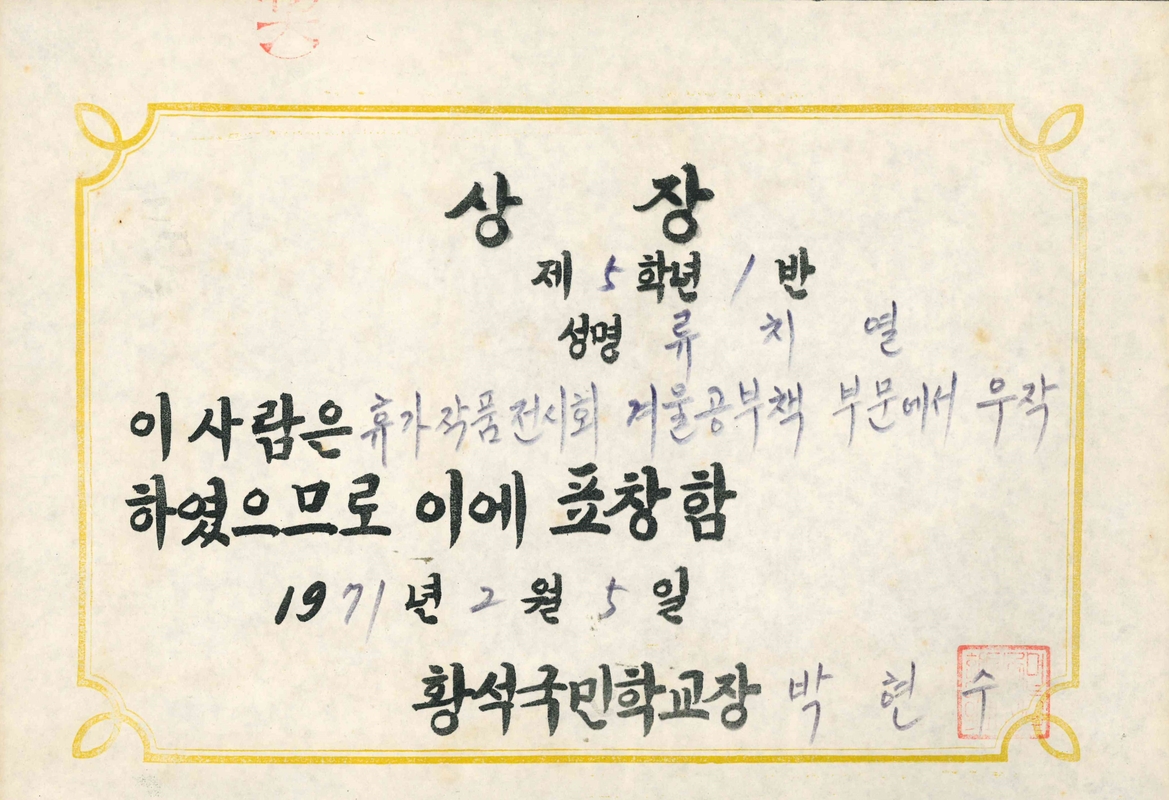 상 장
제 5 학년 1 반
성명 류 치 열
이 사람은 휴가작품전시회 겨울공부책 부문에서 우작
하였으므로 이에 표창함
1971년 2월 5일
황석국민학교장 박 현 수